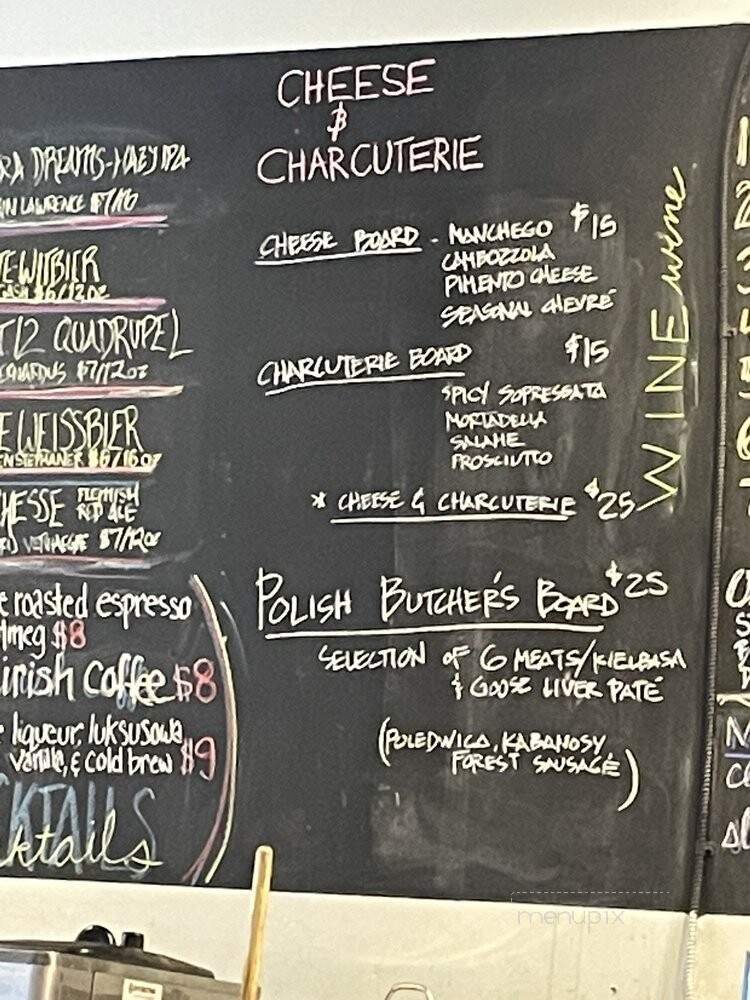 CHEESE
&
CHARCUTERIE
CHEESE BOARD - MANCHEGO $15
CAMBOZZOLA
PIMENTO CHEESE
SEASONAL CHEVRÉ
CHARCUTERIE BOARD $15
SPICY SOPRESSATA
MORTADELLA
SALAME
PROSCIUTTO
* CHEESE & CHARCUTERIE $25
POLISH BUTCHER'S BOARD $25
SELECTION OF 6 MEATS/KIELBASA
& GOOSE LIVER PATÉ
(POLEDWICA, KABANOSY
FOREST SAUSAGE)
WINE wine
DREAMS-HAZY IPA
LAWRENCE $7/16
WITBIER
$6/12oz
QUADRUPEL
$7/12oz
WEISSBIER
$6/16oz
FLEMISH
RED ALE
$7/12oz
roasted espresso
$8
irish coffee $8
liqueur, luksusowa,
& cold brew $9
menupix